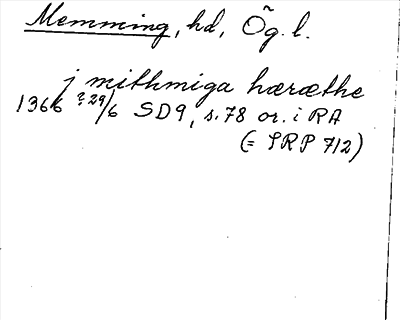 Memming, hd, Ög. l.
j mithmiga hæræthe
1366 ?29/6 SD9, s. 78 or. i RA
(= SRP 712)